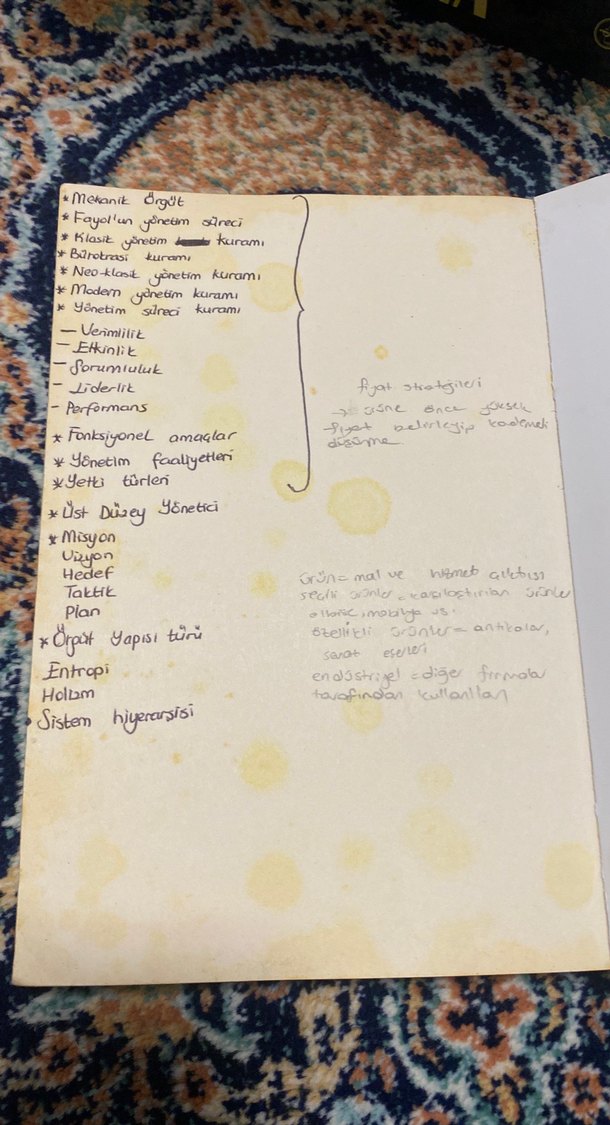 * Mekanik Örgüt
* Fayol'un yönetim süreci
* Klasik yönetim kuramı
* Bürokrasi kuramı
* Neo-klasik yönetim kuramı
* Modern yönetim kuramı
* Yönetim süreci kuramı
- Verimlilik
- Etkinlik
- Sorumluluk
- Liderlik
- Performans
* Fonksiyonel amaçlar
* Yönetim faaliyetleri
* Yetki türleri
* Üst Düzey Yönetici
* Misyon
Vizyon
Hedef
Taktik
Plan
* Örgüt Yapısı türü
Entropi
Holizm
• Sistem hiyerarşisi
fiyat stratejileri
→ ürüne önce yüksek
fiyat belirleyip kademeli
düşürme
ürün = mal ve hizmet çıktısı
seçili ürünler = karşılaştırılan ürünler
mobilya vs.
özellikli ürünler = antikalar,
sanat eserleri
endüstriyel = diğer firmalar
tarafından kullanılan